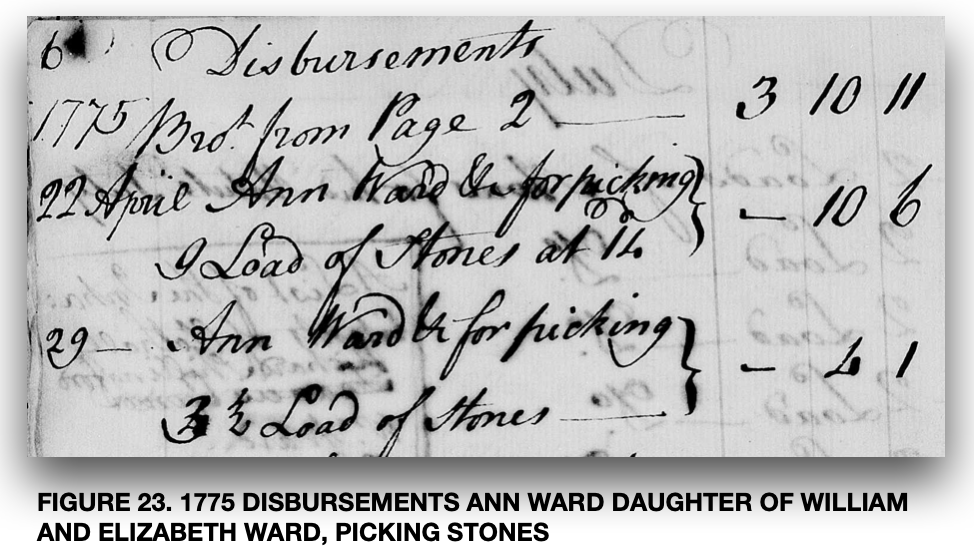 6 Disbursements
1775 Bro.t from Page 2 — 3 10 11
22 April Ann Ward &c for picking } — 10 6
9 Load of Stones at 14d
29 — Ann Ward &c for picking } — 4 1
3 ½ Load of Stones —
FIGURE 23. 1775 DISBURSEMENTS ANN WARD DAUGHTER OF WILLIAM
AND ELIZABETH WARD, PICKING STONES